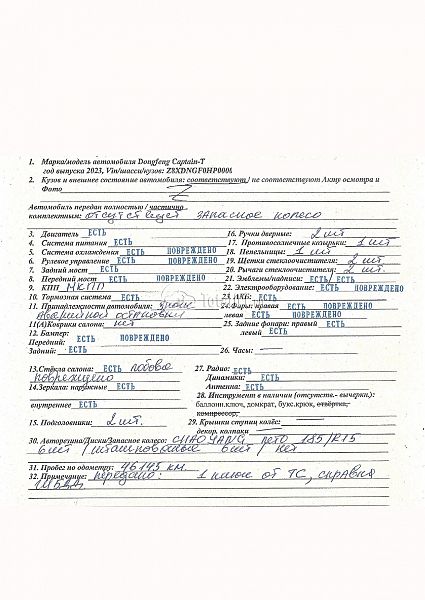 1. Марка/модель автомобиля Dongfeng Captain-T
год выпуска 2023, Vin/шасси/кузов: Z8XDNGF0HP0008
2. Кузов и внешнее состояние автомобиля: соответствуют / не соответствуют Акту осмотра и
Фото
Автомобиль передан полностью / частично
комплектным: отсутствует запасное колесо
3. Двигатель ЕСТЬ
4. Система питания ЕСТЬ
5. Система охлаждения ЕСТЬ ПОВРЕЖДЕНО
6. Рулевое управление ЕСТЬ ПОВРЕЖДЕНО
7. Задний мост ЕСТЬ
8. Передний мост ЕСТЬ ПОВРЕЖДЕНО
9. КПП МКПП
10. Тормозная система ЕСТЬ
11. Принадлежности автомобиля: знак
аварийной остановки
11(А)Коврики салона: нет
12. Бампер:
Передний: ЕСТЬ ПОВРЕЖДЕНО
Задний: ЕСТЬ
16. Ручки дверные: 2 шт
17. Противосолнечные козырьки: 1 шт
18. Пепельницы: 1 шт
19. Щетки стеклоочистителя: 2 шт.
20. Рычаги стеклоочистителя: 2 шт.
21. Эмблемы/надписи: ЕСТЬ / ЕСТЬ
22. Электрооборудование: ЕСТЬ ПОВРЕЖДЕНО
23. АКБ: ЕСТЬ
24. Фары: правая ЕСТЬ ПОВРЕЖДЕНО
левая ЕСТЬ ПОВРЕЖДЕНО
25. Задние фонари: правый ЕСТЬ
левый ЕСТЬ
26. Часы:
13.Стёкла салона: ЕСТЬ лобовое
повреждено
14.Зеркала: наружные ЕСТЬ
внутреннее ЕСТЬ
15. Подголовники: 2 шт.
27. Радио: ЕСТЬ
Динамики: ЕСТЬ
Антенна: ЕСТЬ
28. Инструмент в наличии (отсутств.- вычеркн.):
баллонн.ключ, домкрат, букс.крюк, отвёртка,
компрессор,
29. Крышки ступиц колёс:
декор. колпаки
30. Авторезина/Диски/Запасное колесо: CHAOYANG лето 185/R15
6 шт / штампованые 6 шт / нет
31. Пробег по одометру: 46145 км.
32. Примечание: передано: 1 ключ от ТС, справка